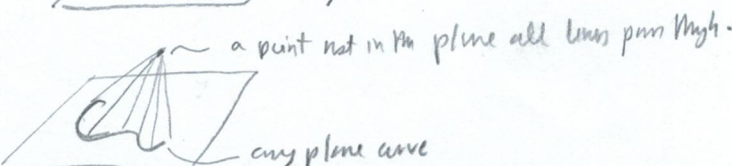 a point not in the plane all lines pass through.
any plane curve